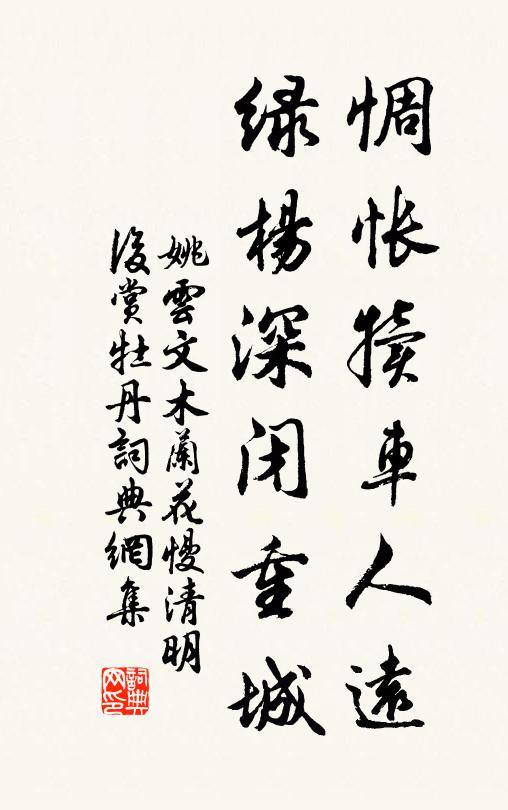 惆悵犢車人遠
綠楊深闭重城
姚雲文木蘭花慢清明
後賞牡丹詞典網集
詞典
网印